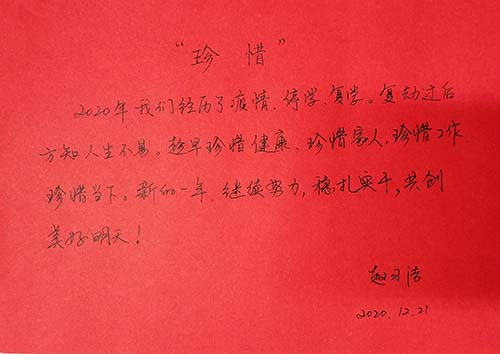 “珍惜”
2020年我们经历了疫情、停学、复学。复劫过后
方知人生不易。趁早珍惜健康、珍惜家人,珍惜工作、
珍惜当下。新的一年,继续努力,稳扎实干,共创
美好明天!
赵习洁
2020.12.21